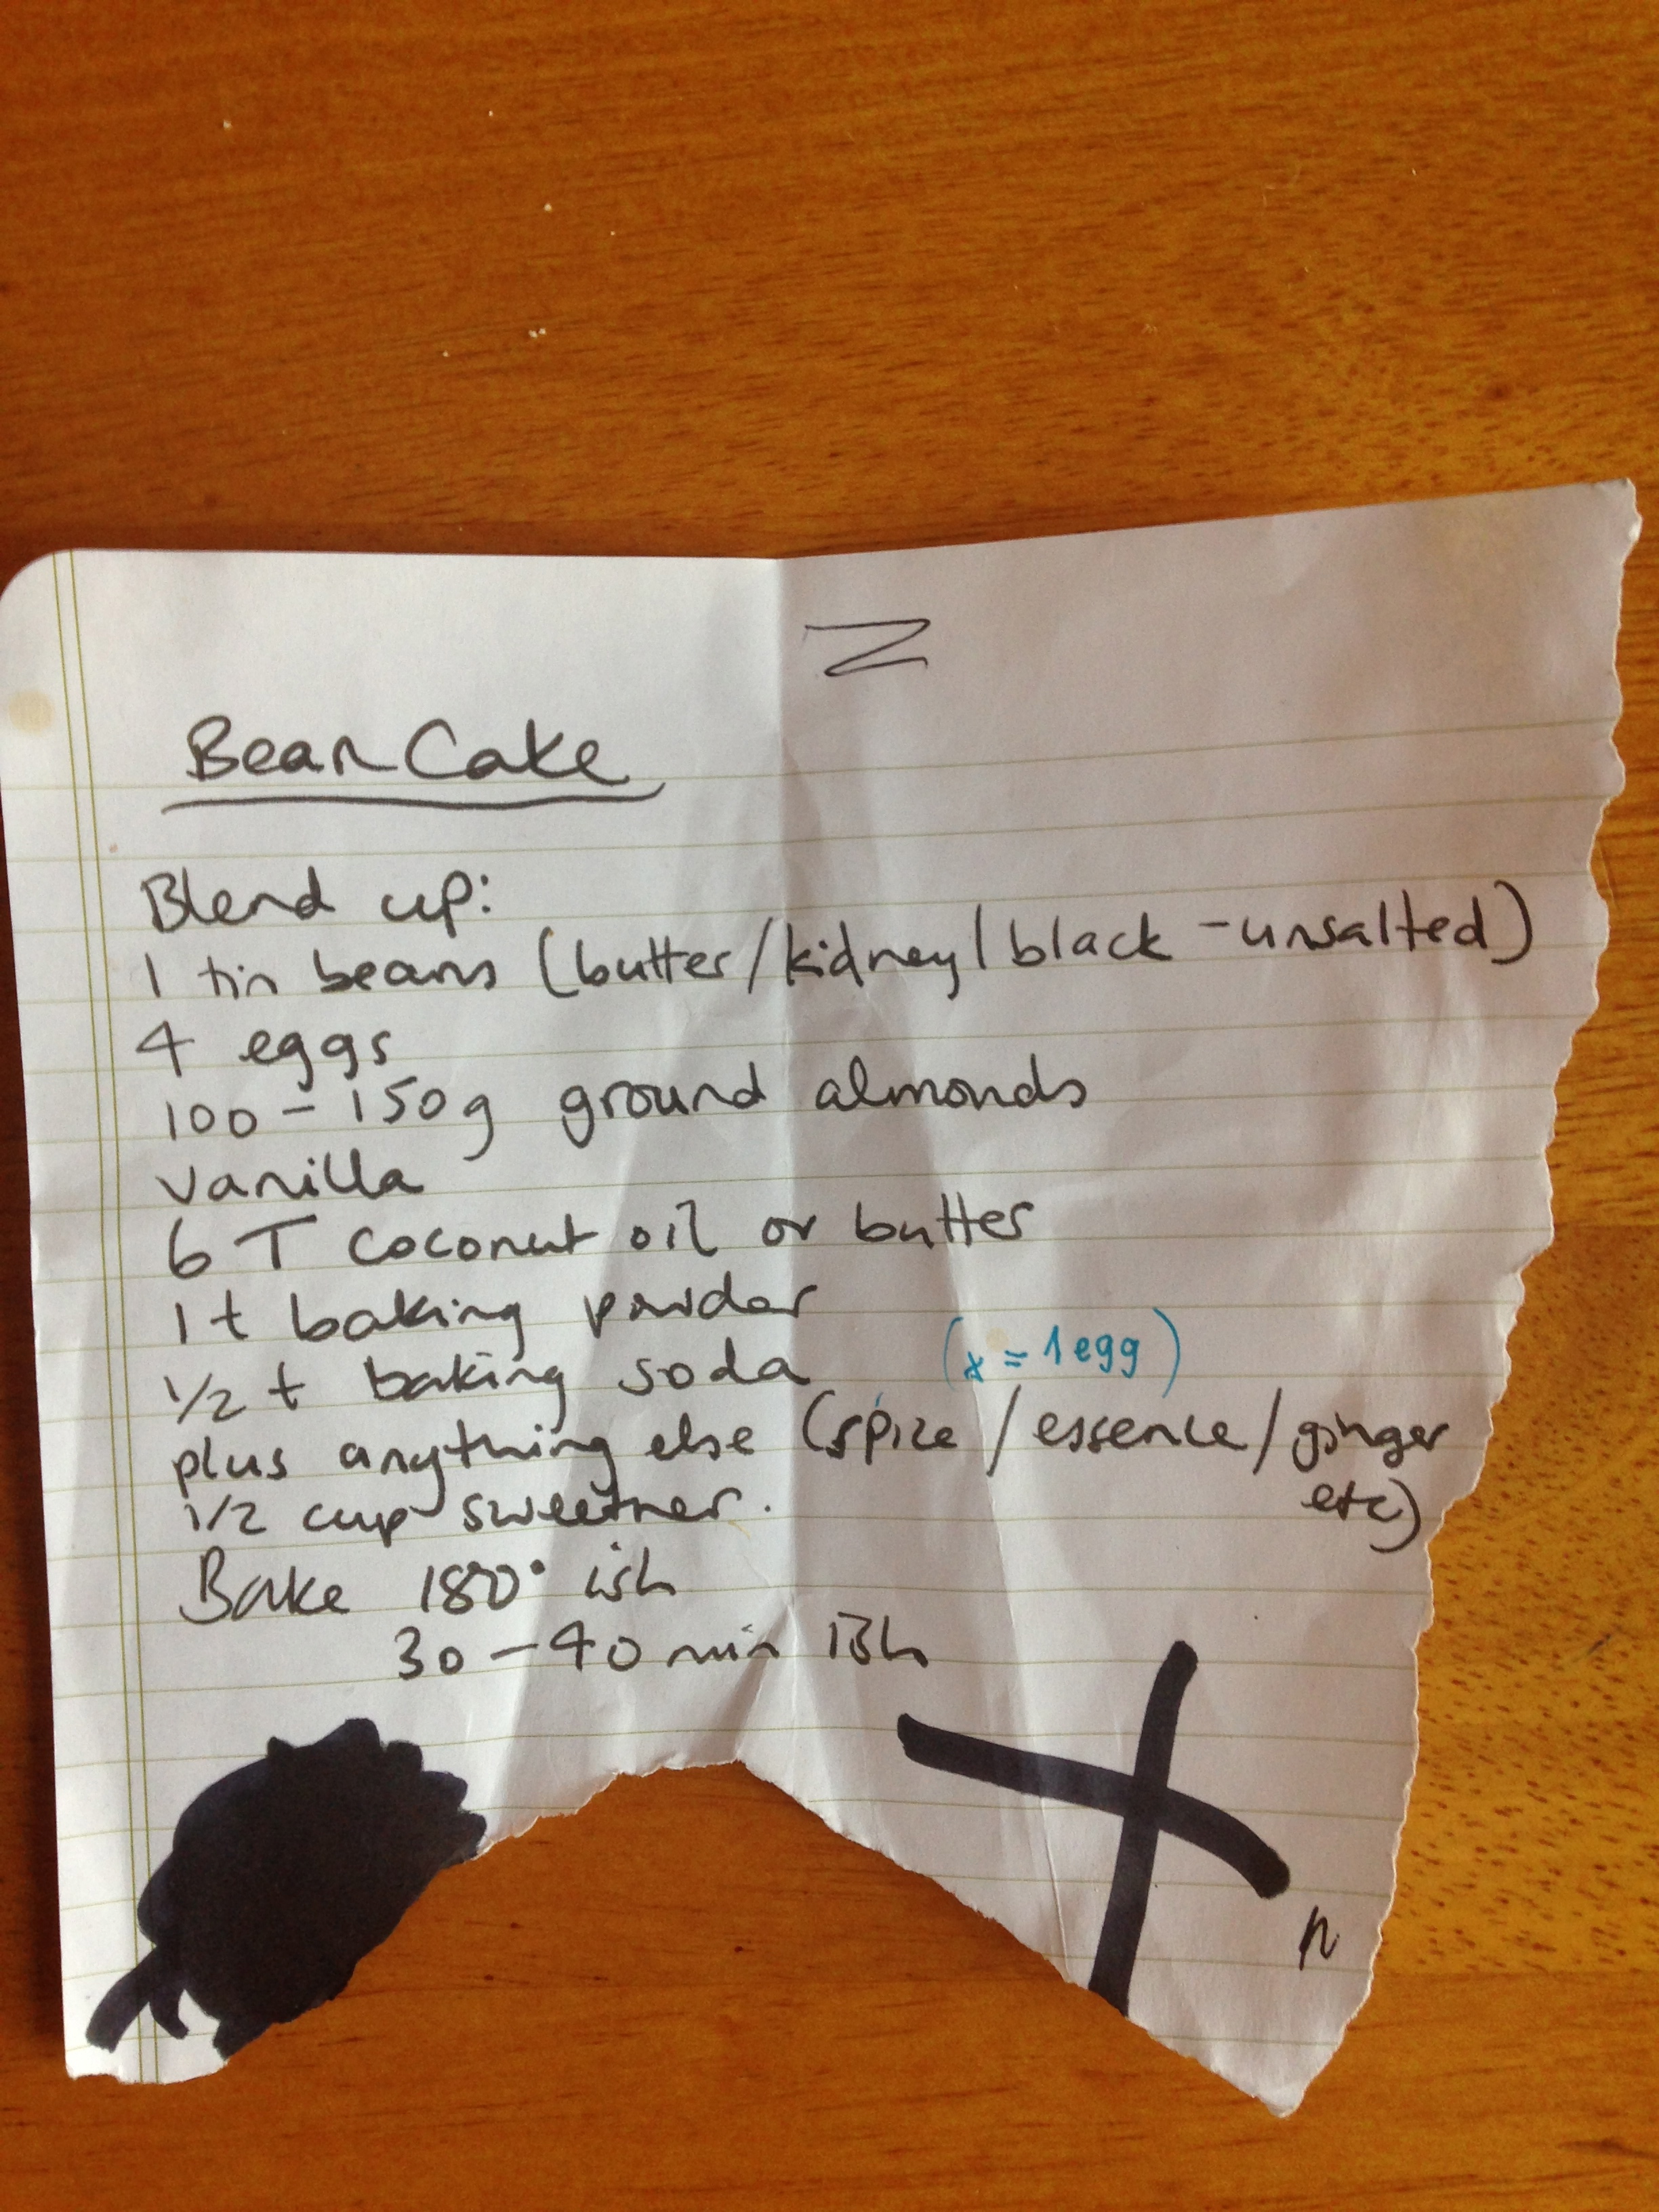 Z
Bean Cake
Blend up:
1 tin beans (butter/kidney/black - unsalted)
4 eggs
100 - 150g ground almonds
vanilla
6 T coconut oil or butter
1 t baking powder
1/2 t baking soda
(x = 1 egg)
plus anything else (spice / essence / ginger
etc)
1/2 cup sweetner.
Bake 180° ish
30 - 40 min ish
n